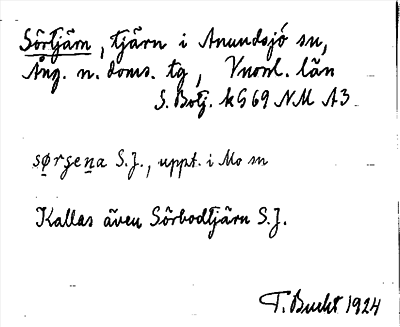 Sörtjärn, tjärn i Anundsjö sn,
Ång. n. doms. tg, Vnorrl. län
S. Botj. k G 69 NM A3
sørɟena S.J., uppt. i Mo sn
Kallas även Sörbodtjärn S.J.
T. Bucht 1924